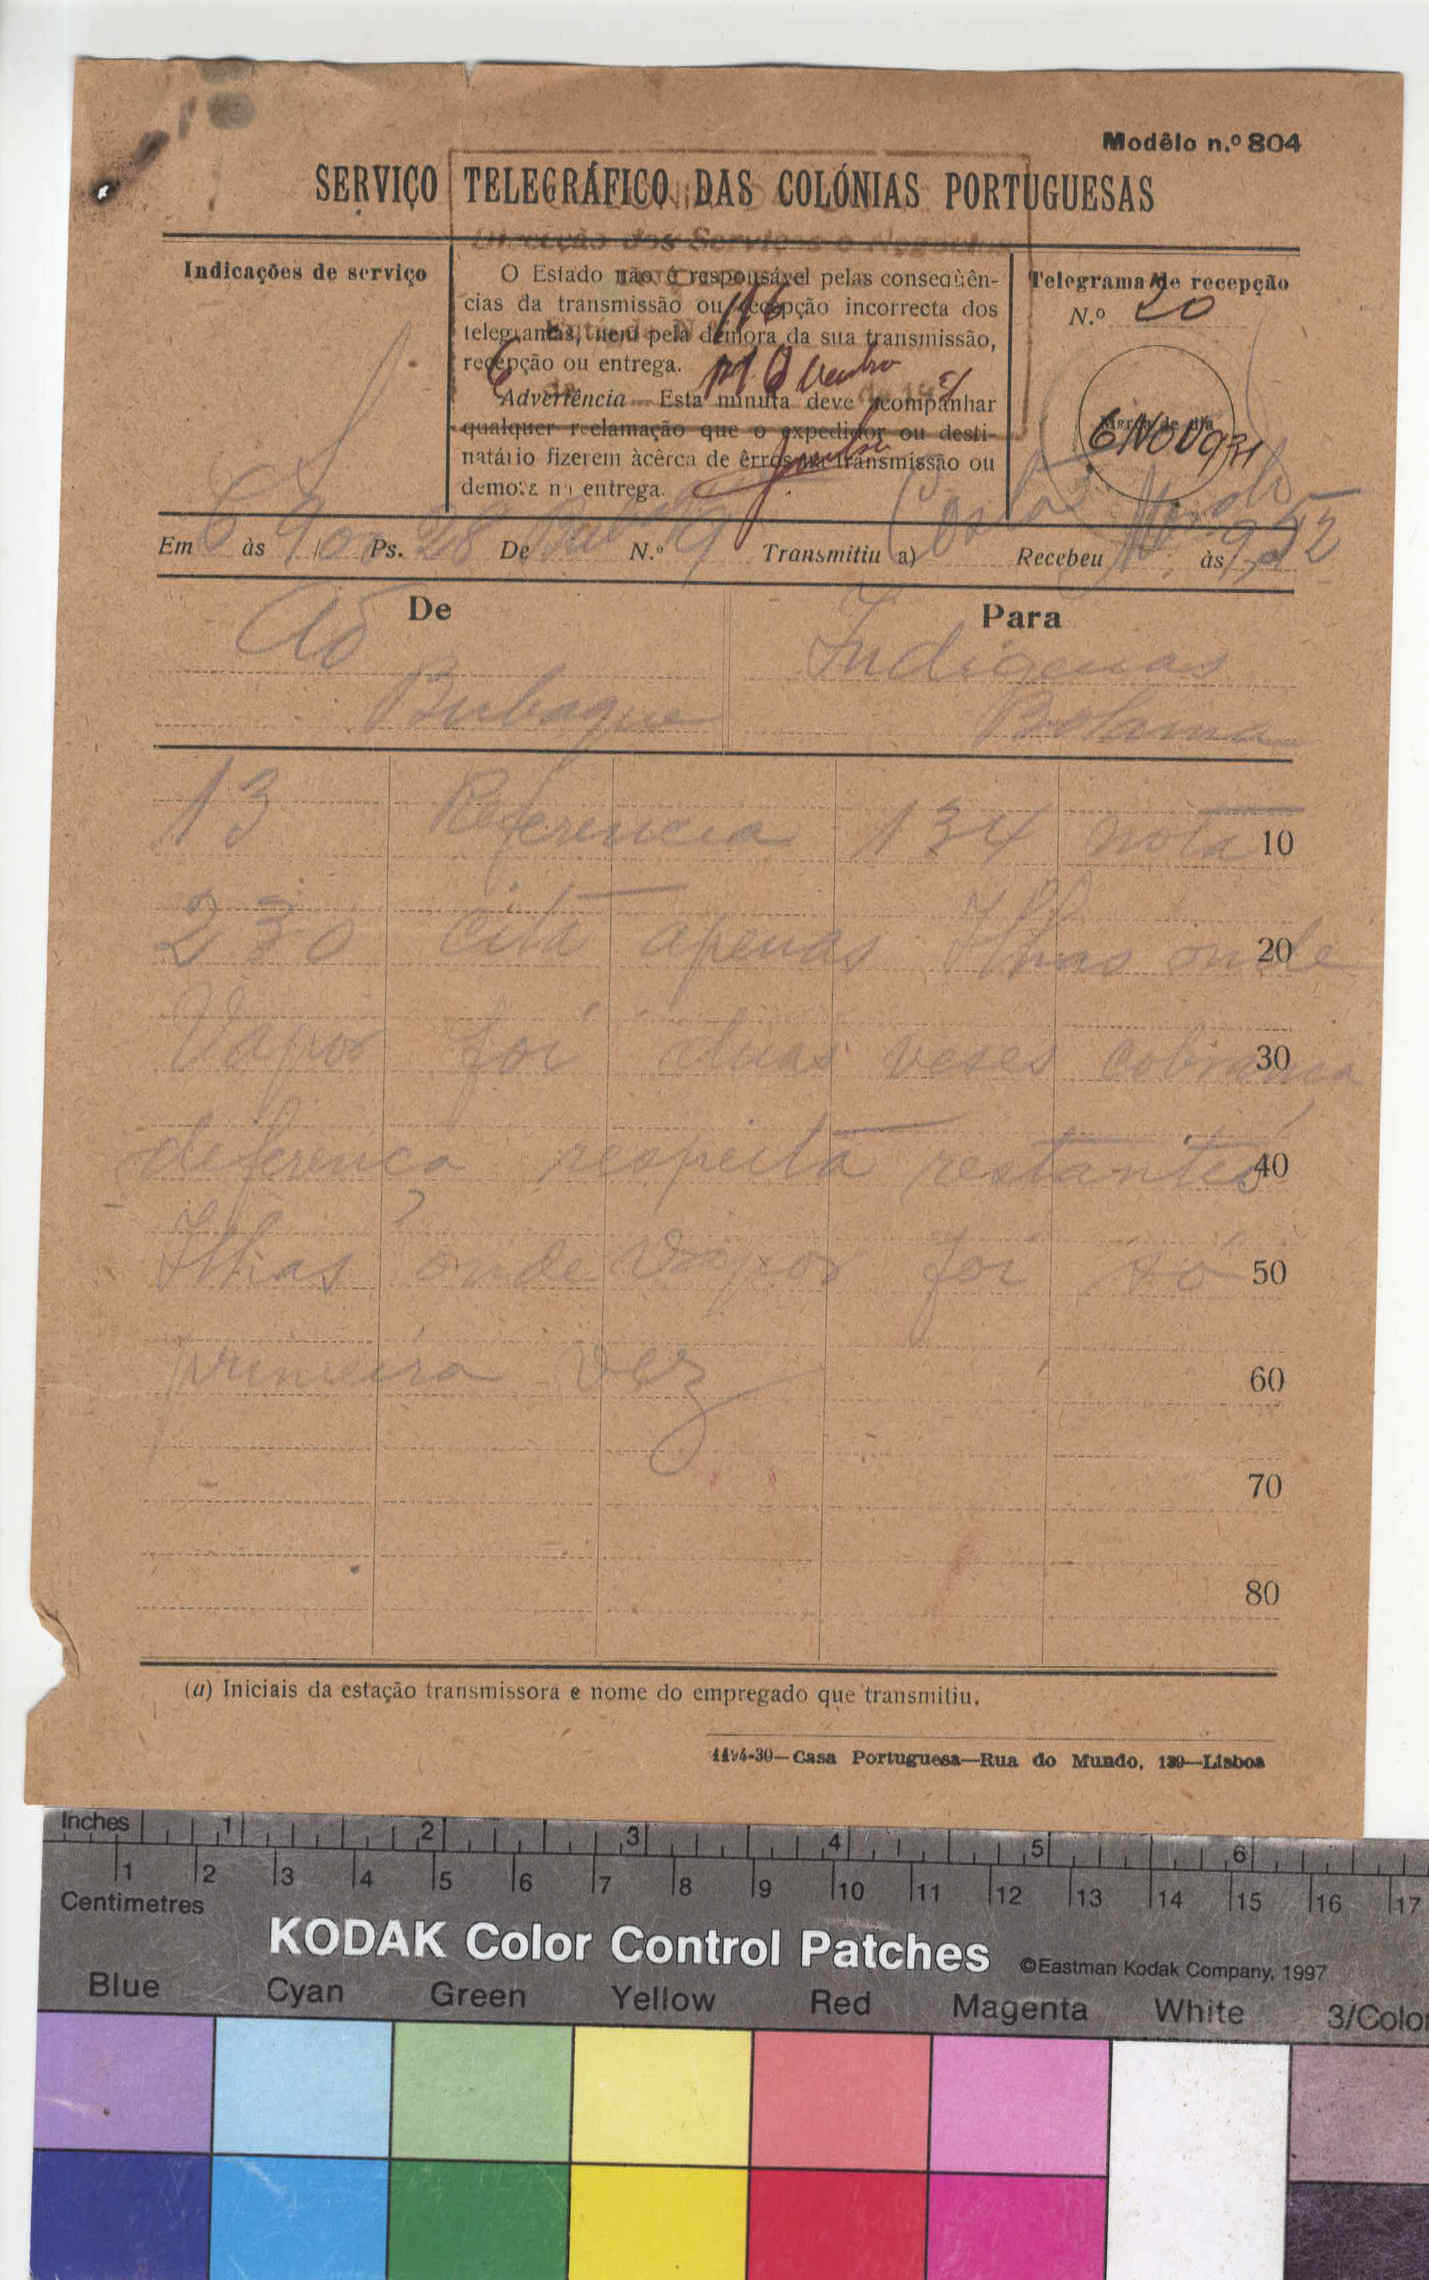 Modêlo n.º 804
SERVIÇO TELEGRÁFICO DAS COLÓNIAS PORTUGUESAS
Direcção dos Serviços e Negocios
Indicações de serviço
O Estado não é responsável pelas conseqùên-
cias da transmissão ou recepção incorrecta dos
telegramas, nem pela demora da sua transmissão,
recepção ou entrega.
Advertência — Esta minuta deve acompanhar
qualquer reclamação que o expedidor ou desti-
natário fizerem àcêrca de êrros na transmissão ou
demora na entrega.
Telegrama de recepção
N.º 20
6 NOV 931
Em 6 às 9 Ps. 28 De N.º 9 Transmitiu a) Recebeu às 9,52
De
Para
Ao
Indigenas
Bubaque
Bolama
13 Referencia 134 nota 10
230 cita apenas Ilhas onde 20
Vapor foi duas veses cobrança 30
deferença respeita restantes 40
Ilhas onde Vapor foi só 50
primeira vez 60
70
80
(a) Iniciais da estação transmissora e nome do empregado que transmitiu.
1194-30—Casa Portuguesa—Rua do Mundo, 139—Lisboa
Inches 1 2 3 4 5 6
1 2 3 4 5 6 7 8 9 10 11 12 13 14 15 16 17
Centimetres
KODAK Color Control Patches ©Eastman Kodak Company, 1997
Blue Cyan Green Yellow Red Magenta White 3/Color